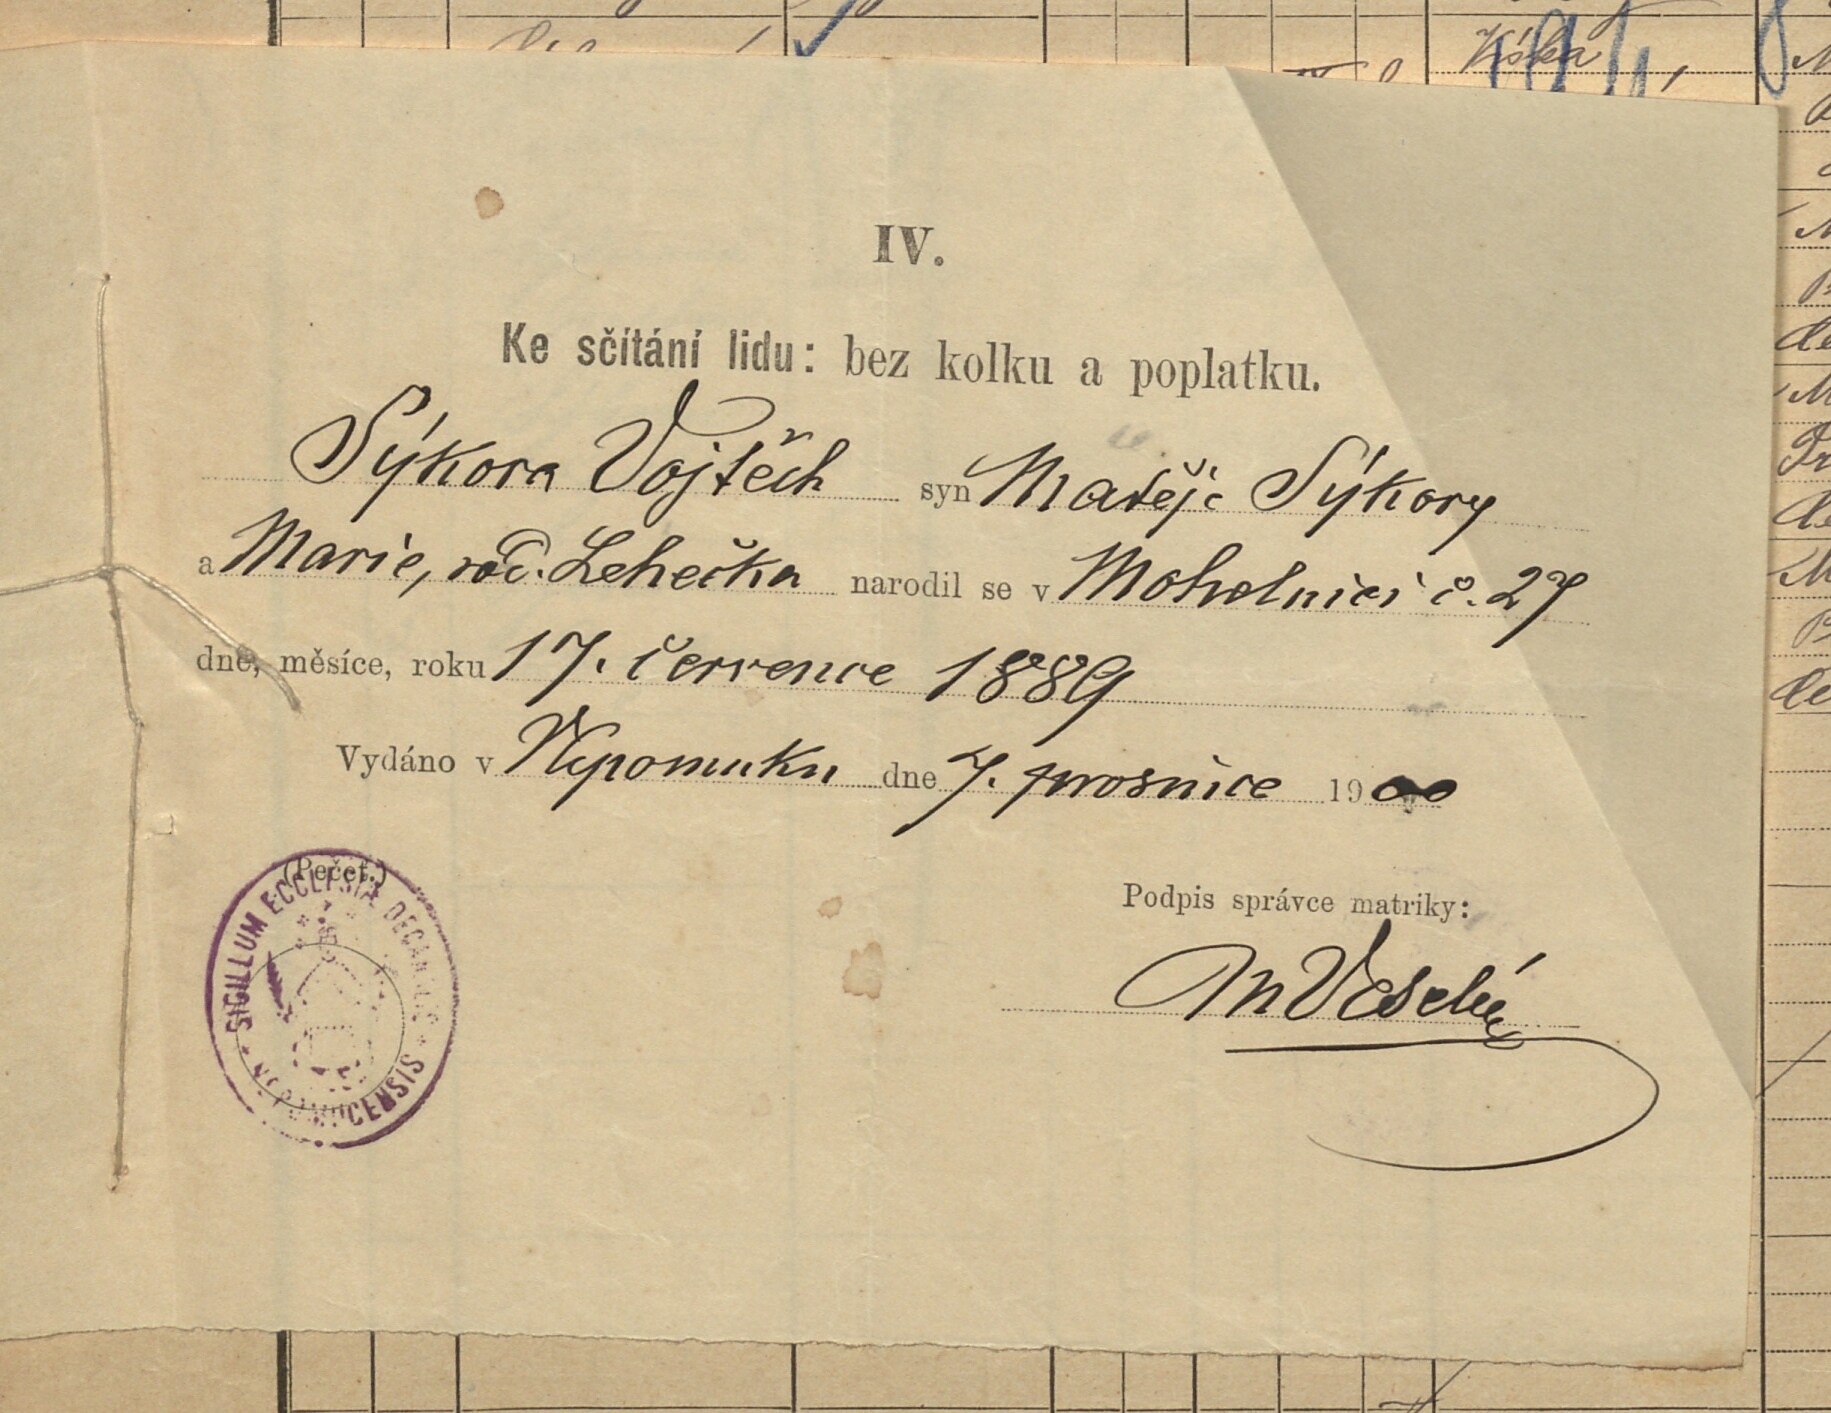 Kíska
IV.
Ke sčítání lidu: bez kolku a poplatku.
Sýkora Vojtěch syn Matěje Sýkory
a Marie, roz. Lehečka narodil se v Moholnici č. 27
dne, měsíce, roku 17. července 1889
Vydáno v Nepomuku dne 7. prosince 1900
(Pečeť.)
SIGILLUM ECCLESIAE DECANALIS NEPOMUCENSIS
Podpis správce matriky:
M Veselý